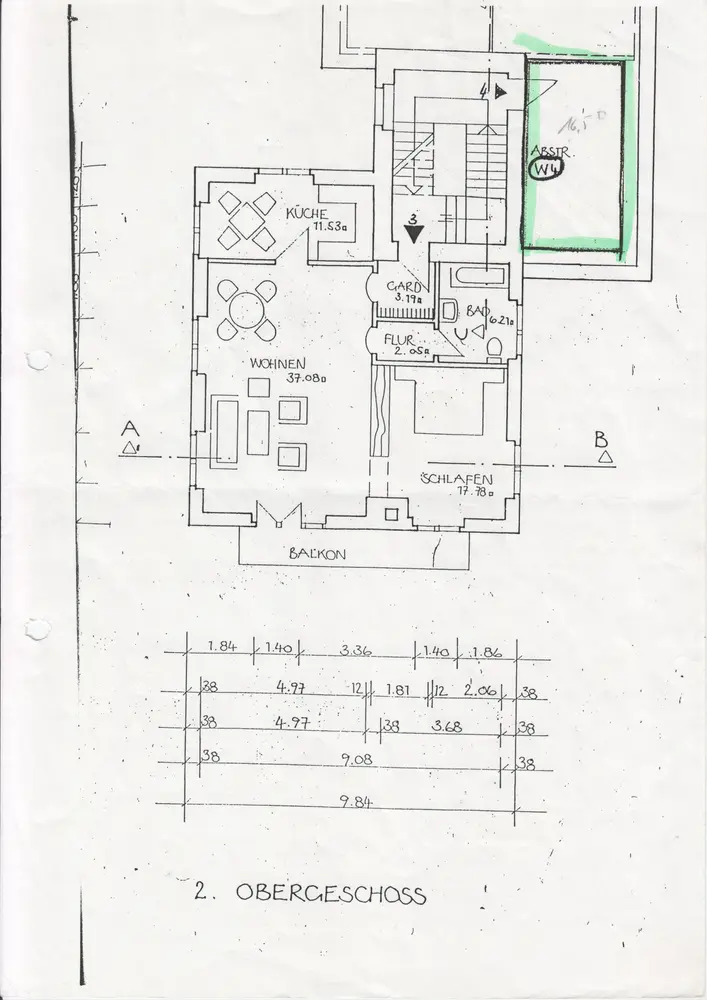 4
16,5 □
ABSTR.
W4
KÜCHE
11.53□
3
GARD.
3.19□
BAD
6.21□
FLUR
2.05□
WOHNEN
37.08□
A
B
SCHLAFEN
17.78□
BALKON
1.84 1.40 3.36 1.40 1.86
38 4.97 12 1.81 12 2.06 38
38 4.97 38 3.68 38
38 9.08 38
9.84
2. OBERGESCHOSS